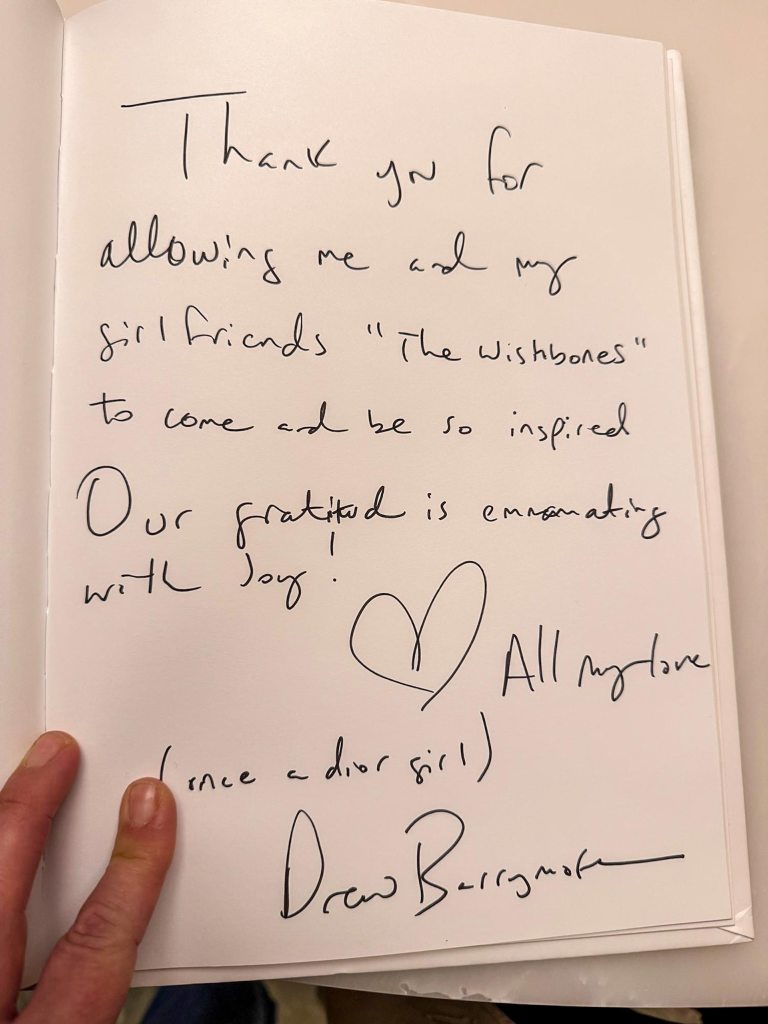 Thank you for
allowing me and my
girlfriends "The Wishbones"
to come and be so inspired
Our gratitud is emmanating
with Joy!
All my love
(once a dior girl)
Drew Barrymore